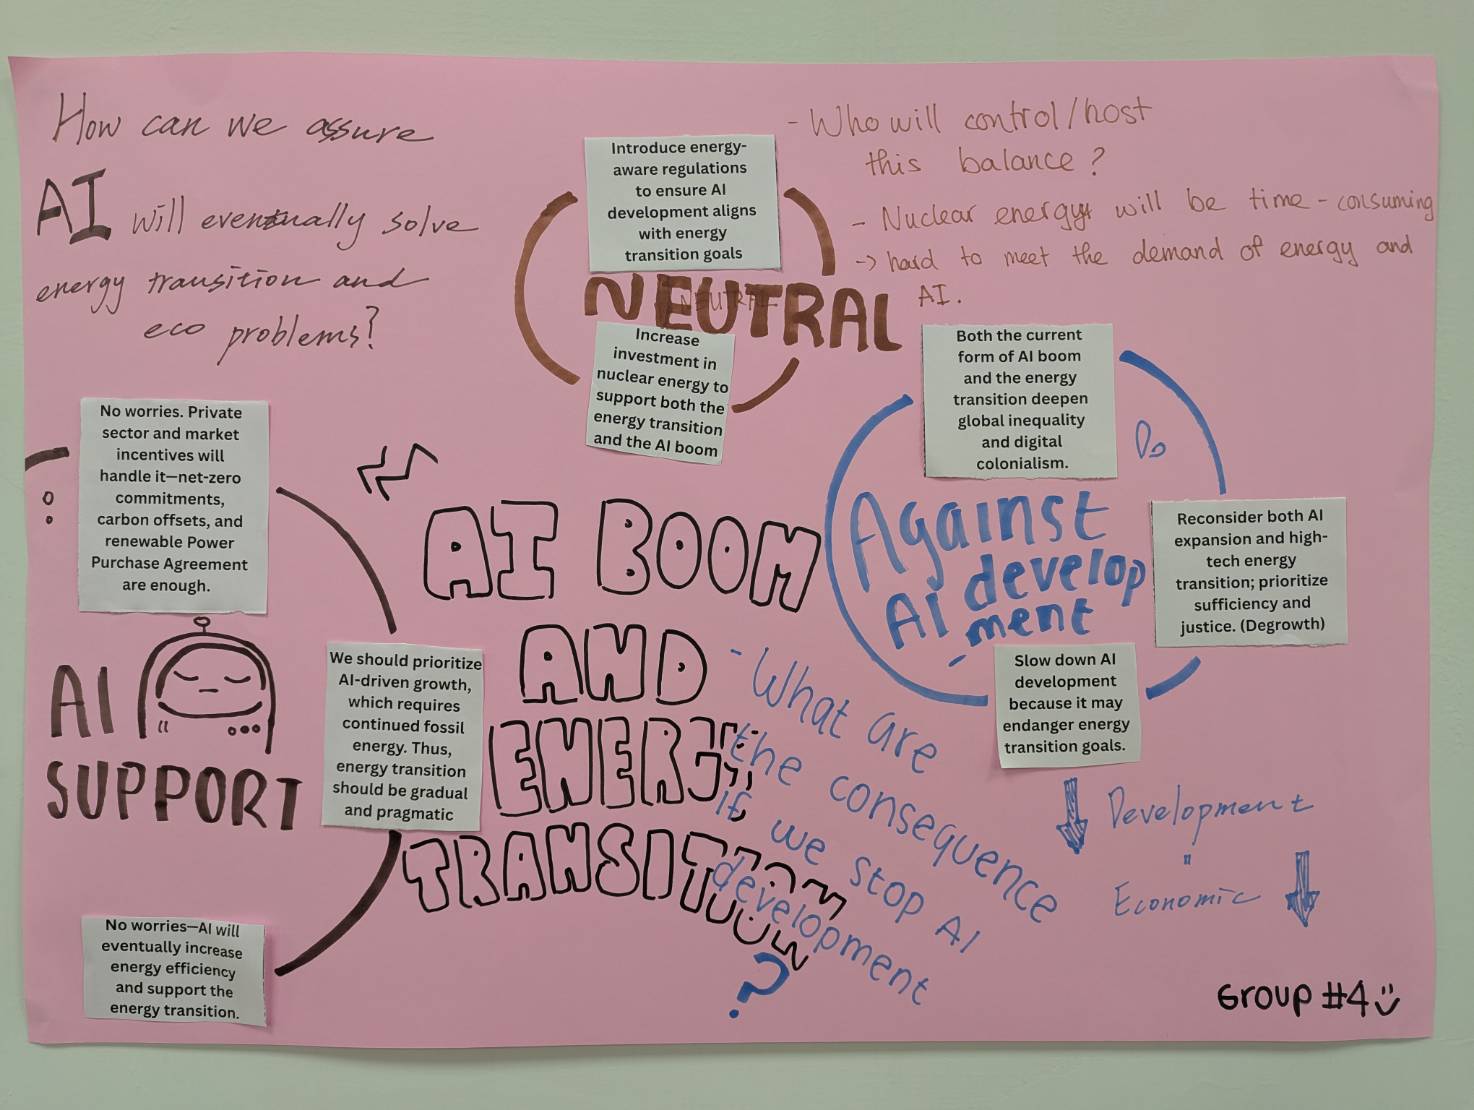 How can we assure
AI will eventually solve
energy transition and
eco problems?
Introduce energy-
aware regulations
to ensure AI
development aligns
with energy
transition goals
NEUTRAL
NEUTRAL
Increase
investment in
nuclear energy to
support both the
energy transition
and the AI boom
- Who will control/host
this balance?
- Nuclear energy will be time-consuming
-> hard to meet the demand of energy and
AI.
No worries. Private
sector and market
incentives will
handle it—net-zero
commitments,
carbon offsets, and
renewable Power
Purchase Agreement
are enough.
AI
SUPPORT
We should prioritize
AI-driven growth,
which requires
continued fossil
energy. Thus,
energy transition
should be gradual
and pragmatic
No worries—AI will
eventually increase
energy efficiency
and support the
energy transition.
AI BOOM
AND
ENERGY
TRANSITION
Both the current
form of AI boom
and the energy
transition deepen
global inequality
and digital
colonialism.
Against
AI develop
-ment
Reconsider both AI
expansion and high-
tech energy
transition; prioritize
sufficiency and
justice. (Degrowth)
Slow down AI
development
because it may
endanger energy
transition goals.
- What are
the consequence
if we stop AI
development
?
Development
Economic
Group #4